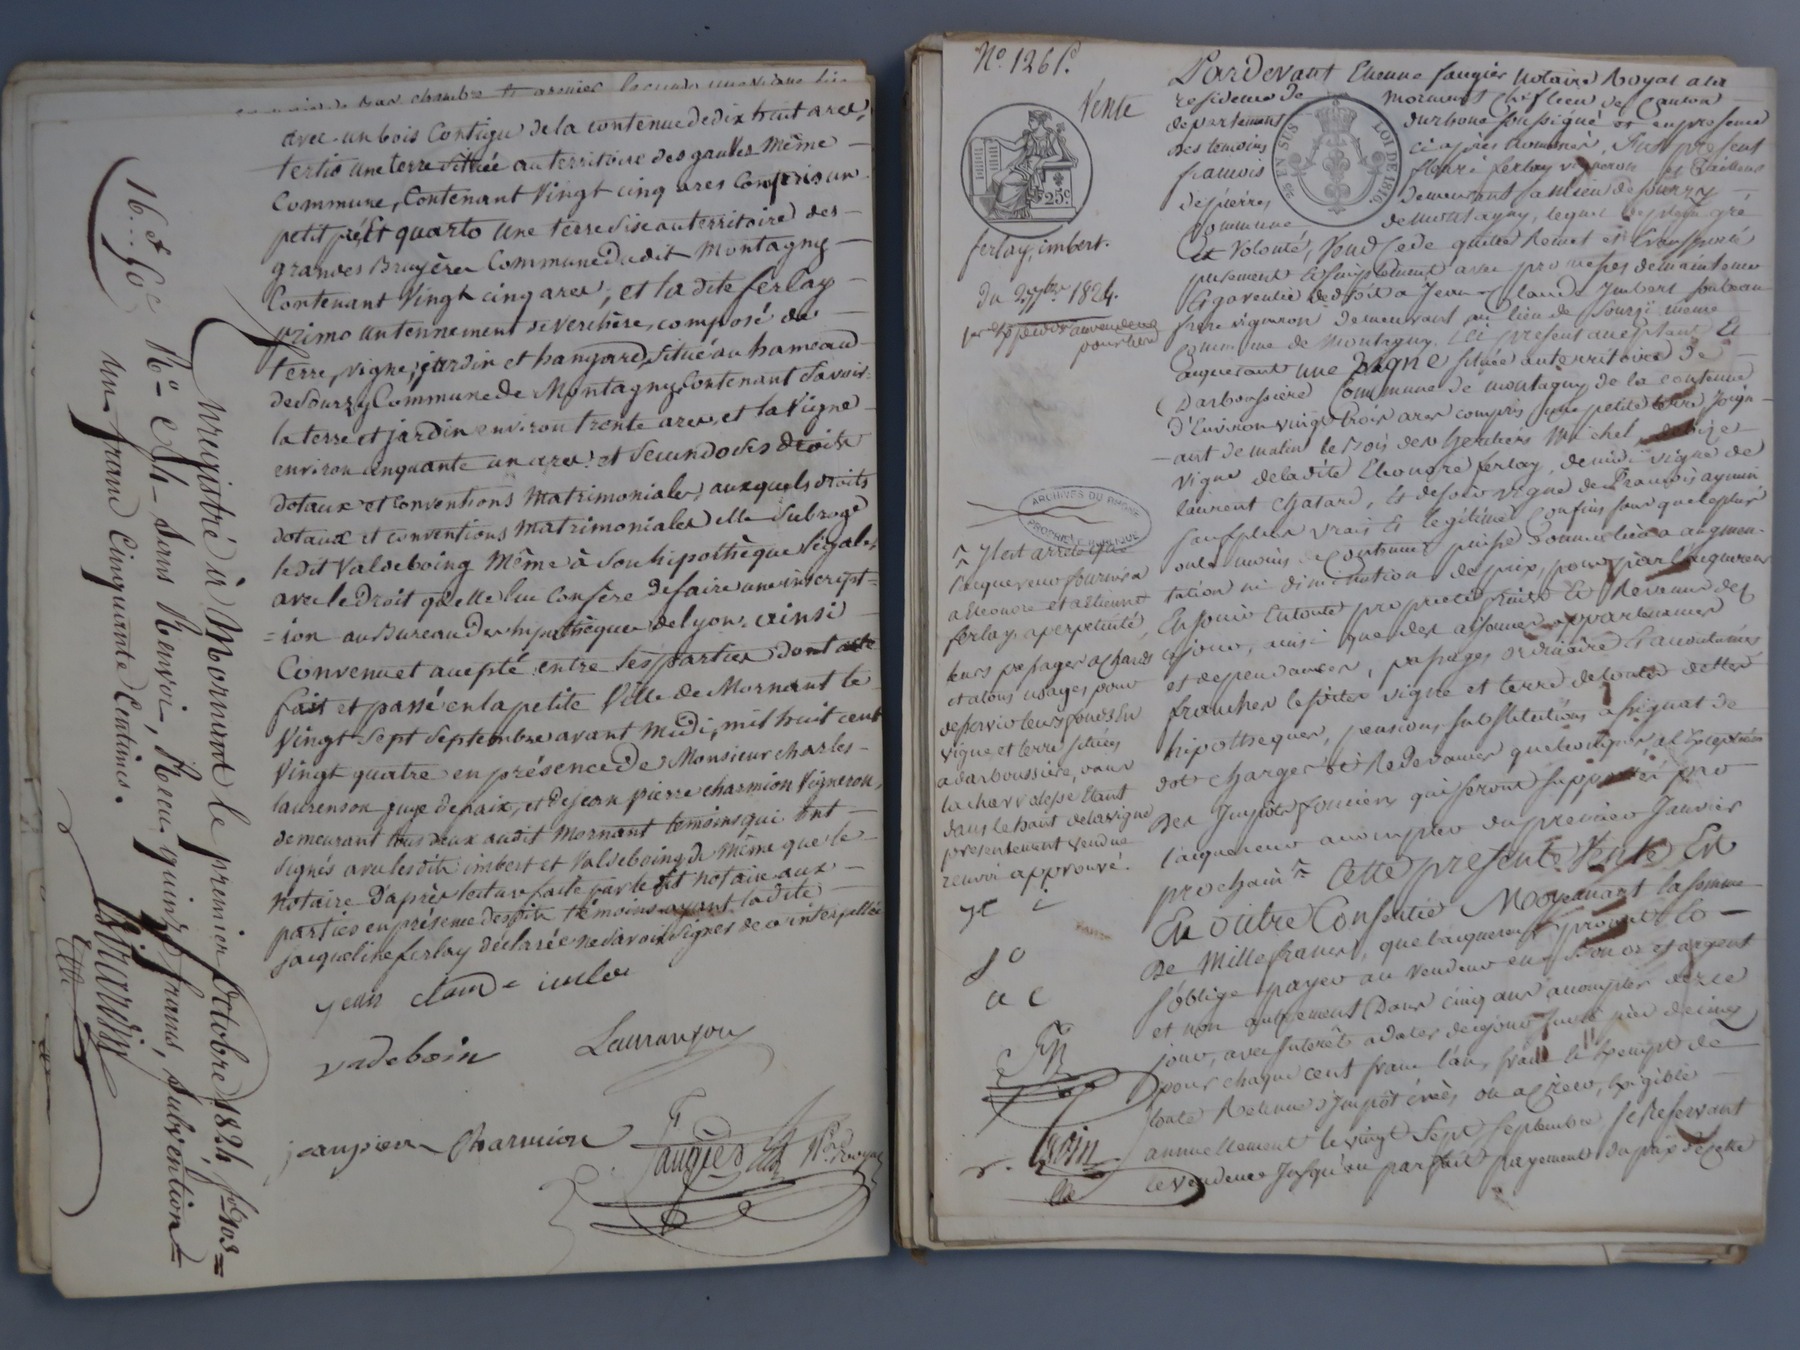 avec un bois Contigu de la contenue de dix huit ares,
tertio une terre située au territoire des gaultes Même
Commune, Contenant Vingt cinq ares Compris un
petit pré Et quarto une terre sise au territoire des
grandes Bruyères Commune Du dit Montagny
Contenant Vingt cinq ares; et la dite ferlay
primo un tennement de Verchère, composé de
terre, vigne, jardin et hangard, situé au hameau
de Sourzy Commune de Montagny, Contenant Savoir:
la terre et jardin environ trente ares, et la Vigne
environ cinquante un ares. et Secundo ses droits
dotaux et Conventions Matrimoniales, auxquels droits
dotaux et conventions matrimoniales elle Subroge
ledit Valdeboing Même à Son hipothèque légale,
avec le Droit qu'elle lui Confère de faire une inscript=
=ion au Bureau Des hipothèques de Lyon. ainsi
Convenu et accepté entre les parties Dont acte
fait et passé en la petite Ville de Mornant le
Vingt Sept Septembre avant Midi, mil huit cent
Vingt quatre en présence de Monsieur charles
laurenson juge de paix, et de jean pierre charmion Vigneron,
demeurant tous deux audit Mornant temoins qui ont
Signés avec lesdits imbert et Valdeboing de Même que le
Notaire D'après lecture faite par le dit notaire aux
parties en présence desdits témoins ayant la dite
jacqueline ferlay déclarée ne Savoir Signer de ce interpellée
jean claude imber
vadeboin Lauranson
jeanpierre Charmion
Faugier
Enregistré à Mornant le premier Octobre 1824 fo 103
Ro C 4 Sans Renvoi, Recu quinze francs, Subvention
un franc Cinquante Centimes.
16 f 50 c
Girardin
No. 1261.
Vente
25c
EN SUS
LOI DE 1816
ferlay, imbert.
Du 27 7bre 1824.
ARCHIVES DU RHONE
Pardevant Etienne faugier Notaire Royal a la
residence de Mornant Chef lieu de Canton
departement du rhone soussigné et en presence
des temoins ci après nommés, fut present
francois ferlay vigneron
demeurant au lieu de Sourzy
commune de montagny, lequel de plein gré
et Volonté, Vend Cede quitte Remet et transporte
purement et simplement avec promesses de maintenue
Et garentie de droit a Jean Claude Imbert son beau
frere vigneron demeurant au lieu de Sourzi meme
commune de montagny. ici present acceptant Et
acquerant une Vigne située au territoire de
Darboussiere Commune de montagny de la contenue
D'Environ vingt trois ares compris une petite terre Joign-
-ant de matin le bois des heritiers Michel, de bize
vigne de ladite Eleonore ferlay, de midi vigne de
laurent Chatard, Et de soir vigne de francois
sauf plus vrais Et legitimes Confins sans que le plus
ou le moins de Contenue puisse Donner lieu a augmen-
tation ni diminution de prix, pour par l'acquereur
En jouir En toute propriété fruits Et Revenus dès
ce jour, ainsi que des aisances appartenances
et dependances, passages ordinaires et accoutumés
franches lesdites vigne et terre de toutes dettes
hipothèques, pensions, substitutions assignat de
dot charges et Redevances quelconques, a l'exception
Des Impots fonciers qui seront supportés par
l'acquereur a compter du premier Janvier
prochain Cette presente Vente Est
En outre Consentie Moyenant la somme
De Mille francs, que l'acquereur promet Et
s'oblige payer au vendeur en or et argent
et non autrement Dans cinq ans a compter de ce
jour, avec Interêts a dater de ce jour
pour chaque cent franc l'an, franc Et Exempt de
toute Retenue d'Impot créés ou a créer, Exigible
annuellement le vingt Sept Septembre se Reservant
le vendeur Jusqu'au parfait payement du prix de cette
Il est arrêté que
l'acquereur fournira
a Eleonore et a Etienne
ferlay a perpetuité,
leurs passages a chards
et a tous usages pour
desservir leurs fonds En
vigne et terre situées
a darboussiere, dans
la charriere Etant
dans le haut de la vigne
presentement vendue
renvoi approuvé.
j c i